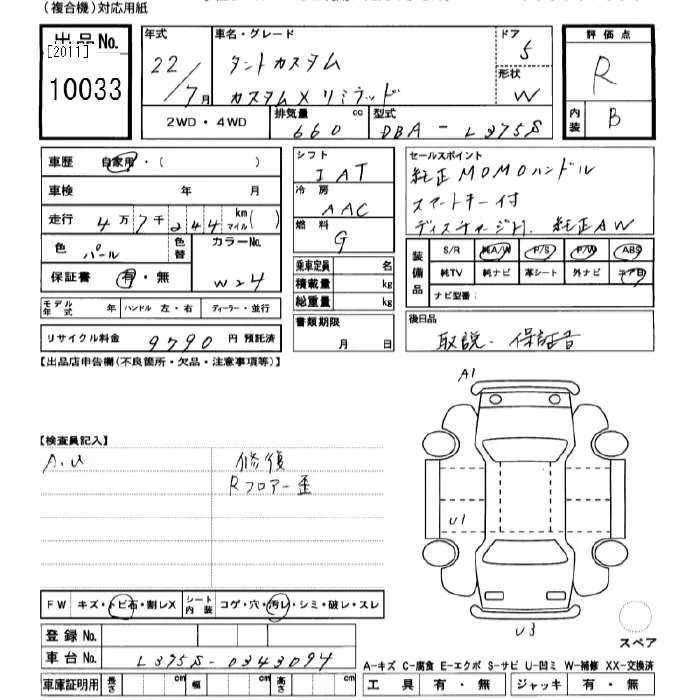 (複合機)対応用紙
出品No.
[2011]
10033
年式
22/7月
車名・グレード
タントカスタム
カスタムX リミテッド
ドア
5
形状
W
評価点
R
内装
B
2WD・4WD
排気量 cc
660
型式
DBA-L375S
車歴 自家用・( )
車検 年 月
走行 4万7千244 km マイル( )
色 パール
色替
カラーNo.
W24
保証書 有・無
モデル年式 年 ハンドル 左・右 ディーラー・並行
リサイクル料金 9790 円 預託済
シフト
IAT
冷房
AAC
燃料
G
乗車定員 名
積載量 kg
総重量 kg
書類期限
月 日
セールスポイント
純正MOMOハンドル
スマートキー付
ディスチャージH. 純正AW
装備品
S/R 純A/W P/S P/W ABS
純TV 純ナビ 革シート 外ナビ エアB
ナビ型番:
後日品
取説・保証書
【出品店申告欄(不良箇所・欠品・注意事項等)】
A1
【検査員記入】
A.U
修復
Rフロアー歪
U1
U3
FW キズ・トビ石・割レX
シート内装 コゲ・穴・汚レ・シミ・破レ・スレ
登録No.
車台No. L375S-0343094
車庫証明用 長さ cm 幅 cm 高さ cm
スペア
A-キズ C-腐食 E-エクボ S-サビ U-凹ミ W-補修 XX-交換済
工具 有・無 ジャッキ 有・無